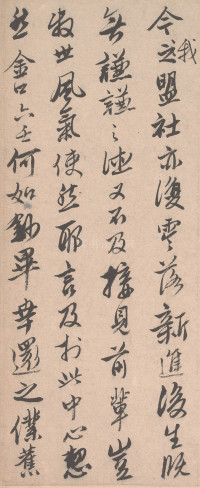 今我之盟社亦復零落新進後生既
無謙謙之德又不及接見前輩豈
叔世風氣使然耶言及於此中心
然金口六壬何如鈔畢幸還之僕蕉